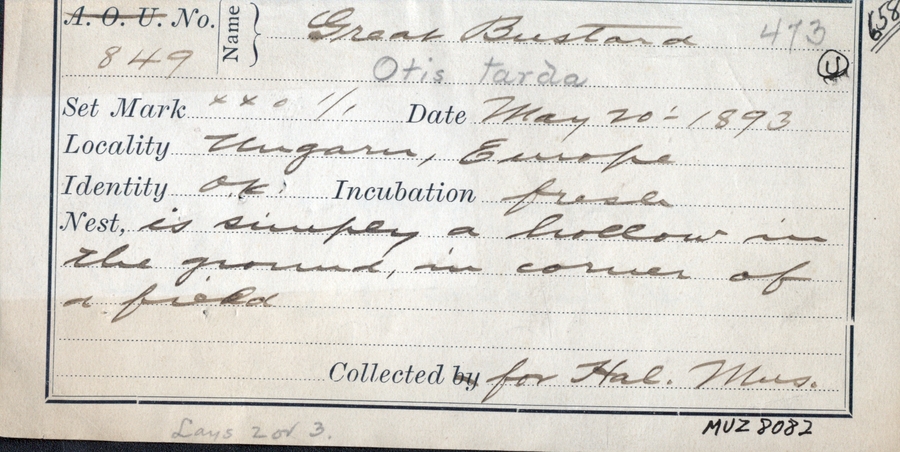 A. O. U. No. Name } Great Bustard 473 658
849 Otis tarda U
Set Mark xxo 1/1 Date May 20 - 1893
Locality Ungarn, Europe
Identity OK. Incubation fresh
Nest, is simply a hollow in
the ground, in corner of
a field
Collected by for Hal. Mus.
Lays 2 or 3. MVZ 8082